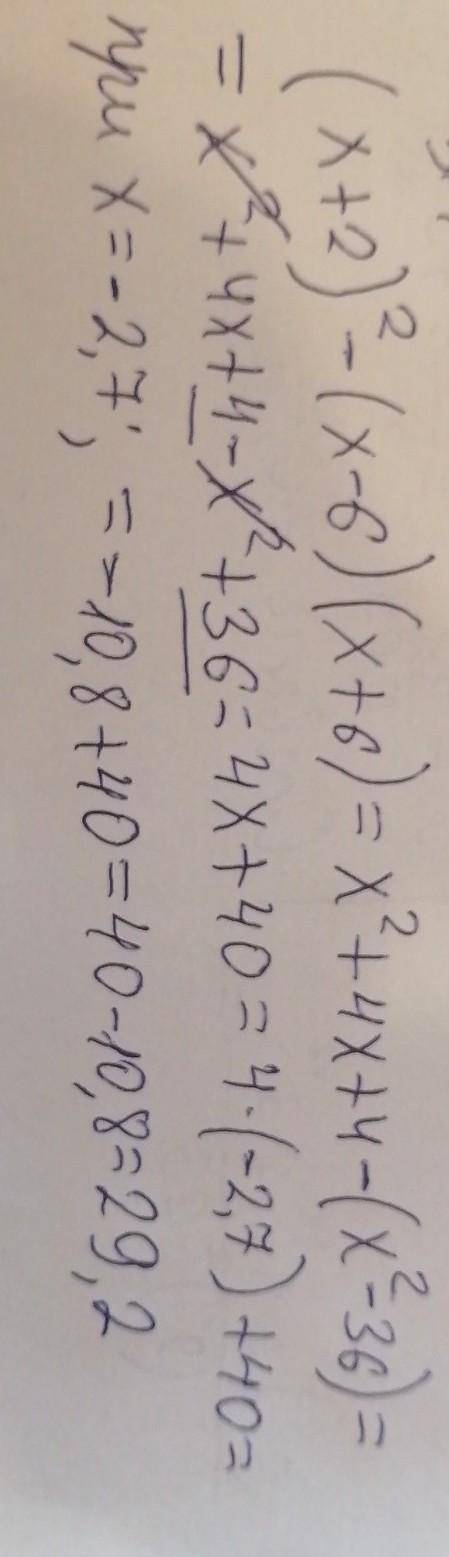 (x+2)² - (x-6)(x+6) = x² + 4x + 4 - (x² - 36) =
= x² + 4x + 4 - x² + 36 = 4x + 40 = 4·(-2,7) + 40 =
при x = -2,7; = -10,8 + 40 = 40 - 10,8 = 29,2